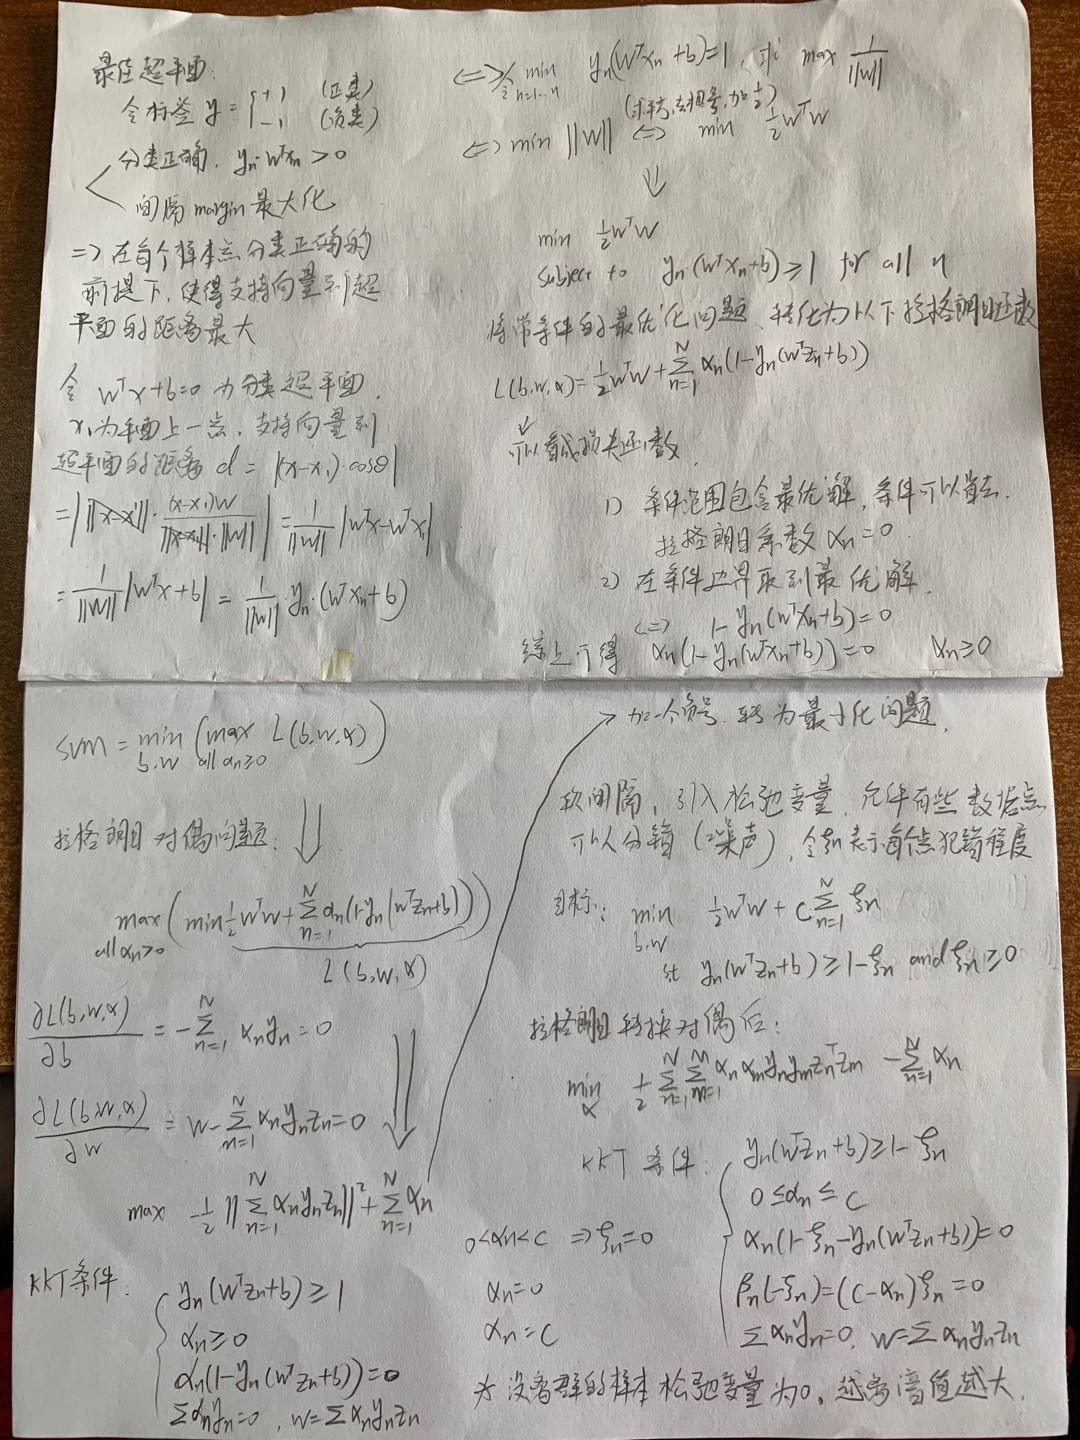 最佳超平面:
令标签 y = { +1 (正类)
-1 (负类)
分类正确, yn·wᵀxn > 0
间隔 margin 最大化
=> 在每个样本点分类正确的
前提下, 使得支持向量到超
平面的距离最大
令 wᵀx+b=0 为分类超平面,
x₁为平面上一点, 支持向量到
超平面的距离 d = |(x-x₁)·cosθ|
= | ||x-x₁||· (x-x₁)w / ||x-x₁||·||w|| | = 1/||w|| |wᵀx-wᵀx₁|
= 1/||w|| |wᵀx+b| = 1/||w||·yn·(wᵀxn+b)
<=> 令 min n=1...n yn(wᵀxn+b)=1, 求 max 1/||w||
(求平方, 去根号, 加½)
<=> min ||w|| <=> min ½wᵀw
⇓
min ½wᵀw
subject to yn·(wᵀxn+b)≥1 for all n
将带条件的最优化问题, 转化为以下拉格朗日函数
L(b,w,α)= ½wᵀw+∑ⁿ₌₁ᴺ αn(1-yn(wᵀzn+b))
↓
可以看成损失函数
1) 条件范围包含最优解, 条件可以省去.
拉格朗日系数 αn=0
2) 在条件边界取到最优解.
<=> 1-yn(wᵀxn+b)=0
综上可得 αn(1-yn(wᵀxn+b))=0 αn≥0
SVM = min b,w (max all αn≥0 L(b,w,α))
拉格朗日对偶问题: ⇓
max all αn≥0 (min ½wᵀw+∑ n=1 N αn(1-yn(wᵀzn+b)))
L(b,w,α)
∂L(b,w,α)/∂b = -∑ n=1 N αnyn=0
∂L(b,w,α)/∂w = w-∑ n=1 N αnynzn=0
max -½||∑ n=1 N αnynzn||²+∑ n=1 N αn
KKT条件: { yn(wᵀzn+b)≥1
αn≥0
αn(1-yn(wᵀzn+b))=0
∑αnyn=0, w=∑αnynzn
→ 加一个负号. 转为最小化问题.
软间隔, 引入松弛变量, 允许有些数据点
可以分错 (噪声), 令ξn表示每个点犯错程度
目标: min b,w ½wᵀw + C∑ n=1 N ξn
st yn(wᵀzn+b)≥1-ξn and ξn≥0
拉格朗日转换对偶后:
min α ½∑ n=1 N ∑ m=1 N αnαmynymznᵀzm -∑ n=1 N αn
KKT 条件: { yn(wᵀzn+b)≥1-ξn
0≤αn≤C
0<αn<C => ξn=0 αn(1-ξn-yn(wᵀzn+b))=0
αn=0 βn(-ξn)=(C-αn)ξn=0
αn=C ∑αnyn=0, w=∑αnynzn
* 没离群的样本松弛变量为0, 越离谱值越大.